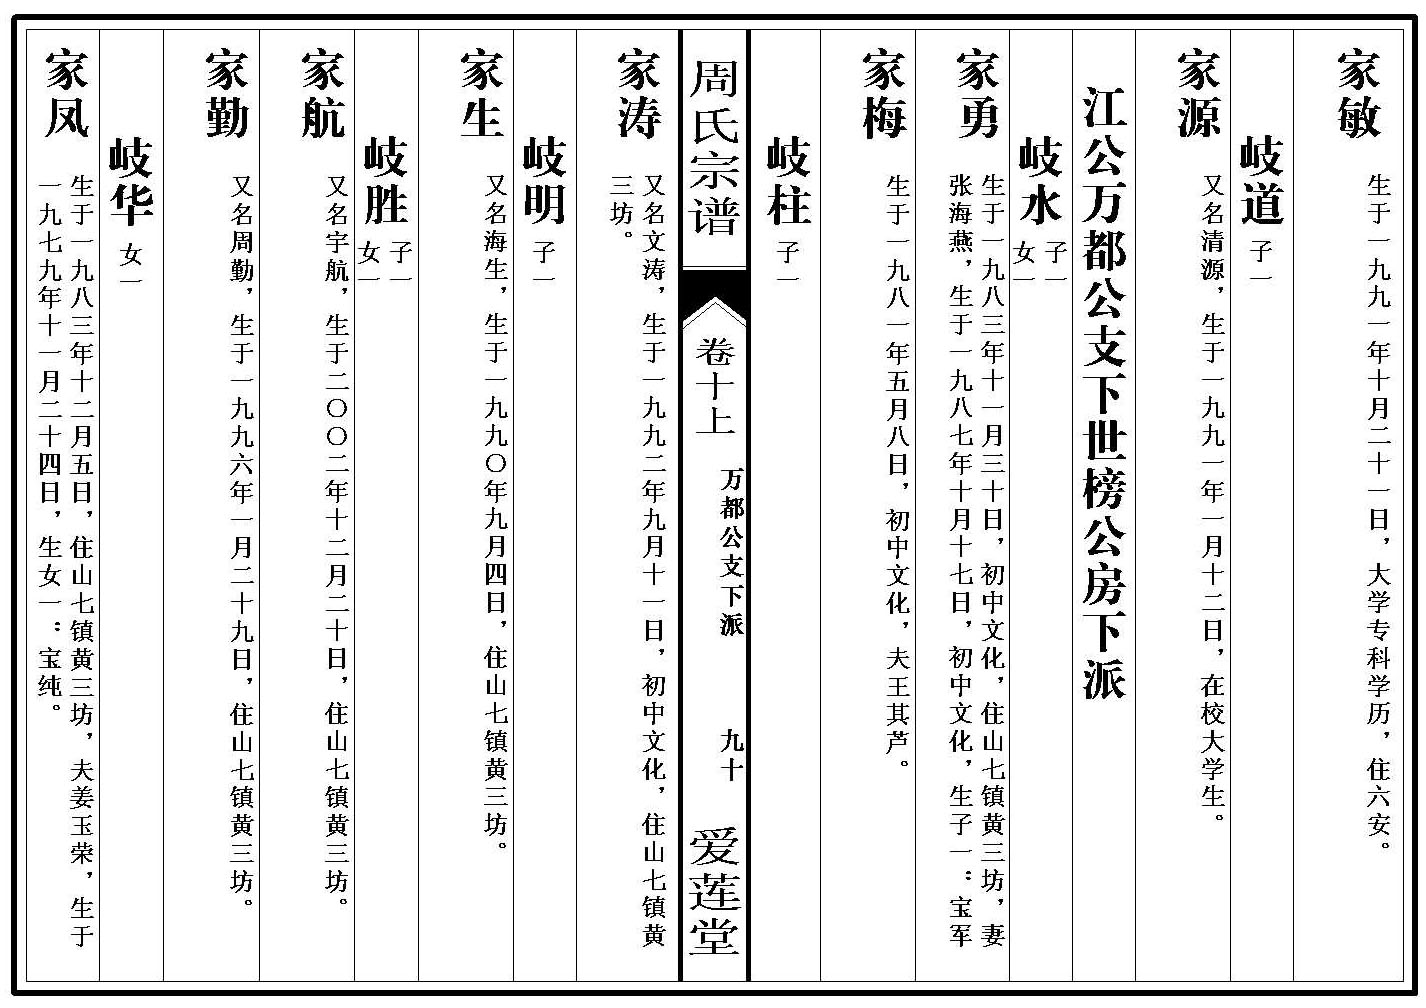 家敏
生于一九九一年十月二十一日，大学专科学历，住六安。
岐道 子一
家源
又名清源，生于一九九一年一月十二日，在校大学生。
江公万都公支下世榜公房下派
岐水 子一
女一
家勇
生于一九八三年十一月三十日，初中文化，住山七镇黄三坊，妻
张海燕，生于一九八七年十月十七日，初中文化，生子一：宝军
家梅
生于一九八一年五月八日，初中文化，夫王其芦。
岐柱 子一
周氏宗谱
卷十上
万都公支下派
九十
爱莲堂
家涛
又名文涛，生于一九九二年九月十一日，初中文化，住山七镇黄
三坊。
岐明 子一
家生
又名海生，生于一九九〇年九月四日，住山七镇黄三坊。
岐胜 子一
女一
家航
又名宇航，生于二〇〇二年十二月二十日，住山七镇黄三坊。
家勤
又名周勤，生于一九九六年一月二十九日，住山七镇黄三坊。
岐华 女一
家凤
生于一九八三年十二月五日，住山七镇黄三坊，夫姜玉荣，生于
一九七九年十一月二十四日，生女一：宝纯。